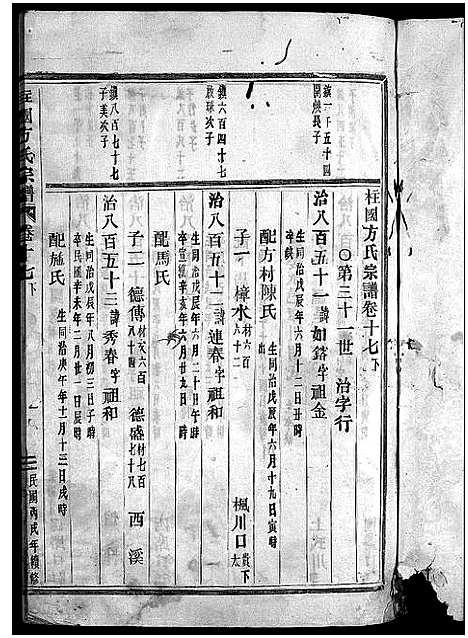 桂國方氏宗譜卷十七下
○第三十一世 治字行
鎮一千五十四
開煥長子
治八百五十一諱如鎔字祖金
生同治戊辰年六月十二日丑時
卒缺
配方村陳氏 生同治戊辰年六月十九日寅時
出
子一 樟水 材六百六十二 楓川口 貴下太
鎮六百四十七
啟球次子
治八百五十二諱連春字祖和
生同治戊辰年六月二十日午時
卒宣統辛亥年六月廿九日時
配馬氏
子二 德傳 材六百 德盛 材七百七十八 西溪
鎮八百七十七
子美次子
治八百五十三諱秀春字祖和
生同治戊辰年八月初三日子時
卒民國辛未年二月廿一日辰時
配施氏 生同治庚午年十一月十三日戌時
桂國方氏宗譜 卷十七下
民國丙戌年續修